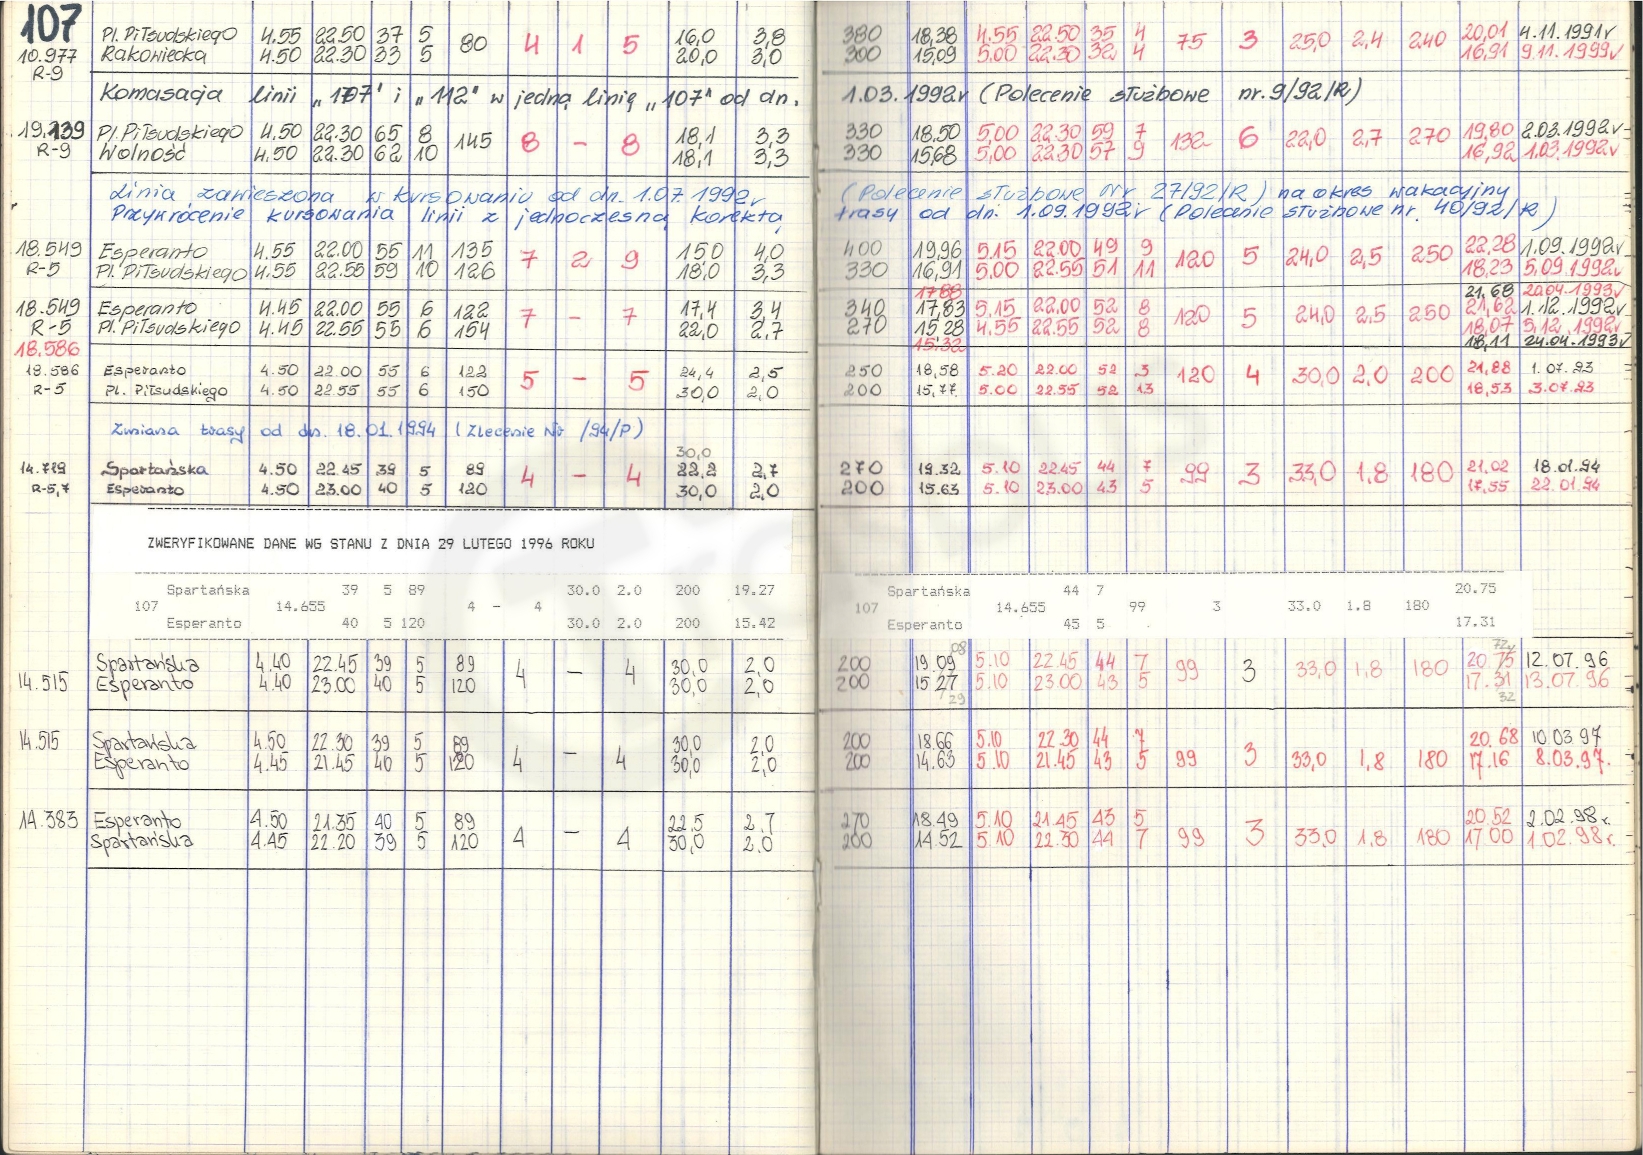 107 Pl. Piłsudskiego 4.55 22.50 37 5 80 4 1 5 16,0 3,8 380 18,38 4.55 22.50 35 4 75 3 25,0 2,4 240 20,01 4.11.1991r
10.977 Rakowiecka 4.50 22.30 33 5 20,0 3,0 300 15,09 5.00 22.30 32 4 16,91 9.11.1999r
R-9
Komasacja linii „107" i „112" w jedną linię „107" od dn. 1.03.1992r (Polecenie służbowe nr. 9/92/R)
19.139 Pl. Piłsudskiego 4.50 22.30 65 8 145 8 - 8 18,1 3,3 330 18,50 5,00 22.30 59 7 132 6 22,0 2,7 270 19,80 2.03.1992r
R-9 Wolność 4,50 22.30 62 10 18,1 3,3 330 15,68 5,00 22.30 57 9 16,92 1.03.1992r
Linia zawieszona w kursowaniu od dn. 1.07.1992r (Polecenie służbowe Nr 27/92/R) na okres wakacyjny
Przywrócenie kursowania linii z jednoczesną korektą trasy od dn. 1.09.1992r (Polecenie służbowe nr. 40/92/R)
18.549 Esperanto 4.55 22.00 55 11 135 7 2 9 15,0 4,0 400 19,96 5.15 22.00 49 9 120 5 24,0 2,5 250 22,28 1.09.1992r
R-5 Pl. Piłsudskiego 4.55 22.55 59 10 126 18,0 3,3 330 16,91 5.00 22.55 51 11 18,23 5.09.1992r
17.88 21,68 20.04.1993r
18.549 Esperanto 4.45 22.00 55 6 122 7 - 7 17,4 3,4 340 17,83 5,15 22.00 52 8 120 5 24,0 2.5 250 21,62 1.12.1992r
R-5 Pl. Piłsudskiego 4.45 22.55 55 6 154 22,0 2,7 270 15,28 4.55 22.55 52 8 18,07 5.12.1992r
18.586 15.32 18,11 24.04.1993r
18.586 Esperanto 4.50 22.00 55 6 122 5 - 5 24,4 2,5 250 18,58 5.20 22.00 52 3 120 4 30,0 2,0 200 21,88 1.07.93
R-5 Pl. Piłsudskiego 4.50 22.55 55 6 150 30,0 2,0 200 15,77 5.00 22.55 52 13 18,53 3.07.93
Zmiana trasy od dn. 18.01.1994 (Zlecenie Nr /94/P)
30,0
14.719 Spartańska 4.50 22.45 39 5 89 4 - 4 22,2 2,7 270 19.32 5.10 22.45 44 7 99 3 33,0 1,8 180 21,02 18.01.94
R-5,7 Esperanto 4.50 23.00 40 5 120 30,0 2,0 200 15.63 5.10 23.00 43 5 17,55 22.01.94
ZWERYFIKOWANE DANE WG STANU Z DNIA 29 LUTEGO 1996 ROKU
Spartańska 39 5 89 30.0 2.0 200 19.27 Spartańska 44 7 20.75
107 14.655 4 - 4 107 14.655 99 3 33.0 1.8 180
Esperanto 40 5 120 30.0 2.0 200 15.42 Esperanto 45 5 17.31
08 72
Spartańska 4.40 22.45 39 5 89 4 - 4 30,0 2,0 200 19.09 5.10 22.45 44 7 99 3 33,0 1,8 180 20.75 12.07.96
14.515 Esperanto 4.40 23.00 40 5 120 30,0 2,0 200 15.27 5.10 23.00 43 5 17.31 13.07.96
29 32
14.515 Spartańska 4.50 22.30 39 5 89 4 - 4 30,0 2,0 200 18.66 5.10 22.30 44 7 99 3 33,0 1,8 180 20.68 10.03.97
Esperanto 4.45 21.45 40 5 120 30,0 2,0 200 14.63 5.10 21.45 43 5 17.16 8.03.97.
14.383 Esperanto 4.50 21.35 40 5 89 4 - 4 22,5 2,7 270 18.49 5.10 21.45 43 5 99 3 33,0 1,8 180 20.52 2.02.98r.
Spartańska 4.45 22.20 39 5 120 30,0 2,0 200 14.52 5.10 22.30 44 7 17.00 1.02.98r.